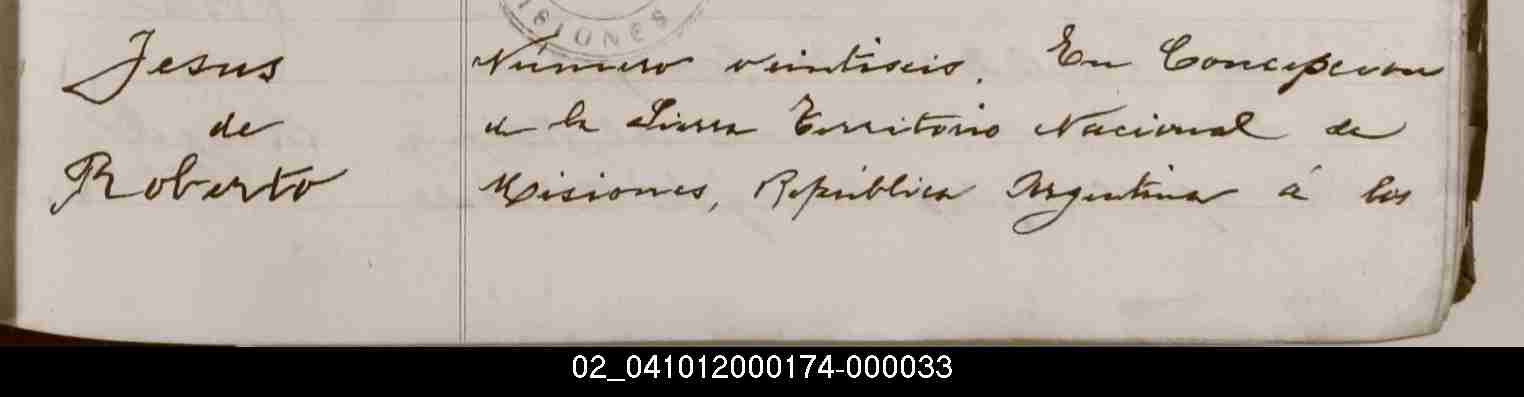 ISIONES
Jesus
de
Roberto
Número veintiseis. En Concepcion
de la Sierra Territorio Nacional de
Misiones, República Argentina á los
02_041012000174-000033